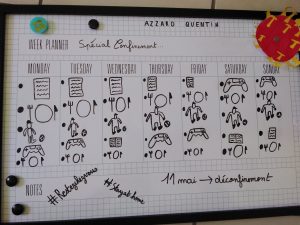 AZZARO QUENTIN
WEEK PLANNER Spécial Confinement
MONDAY TUESDAY WEDNESDAY THURSDAY FRIDAY SATURDAY SUNDAY
11 mai → déconfinement
NOTES #Restezchezvous #Stayathome